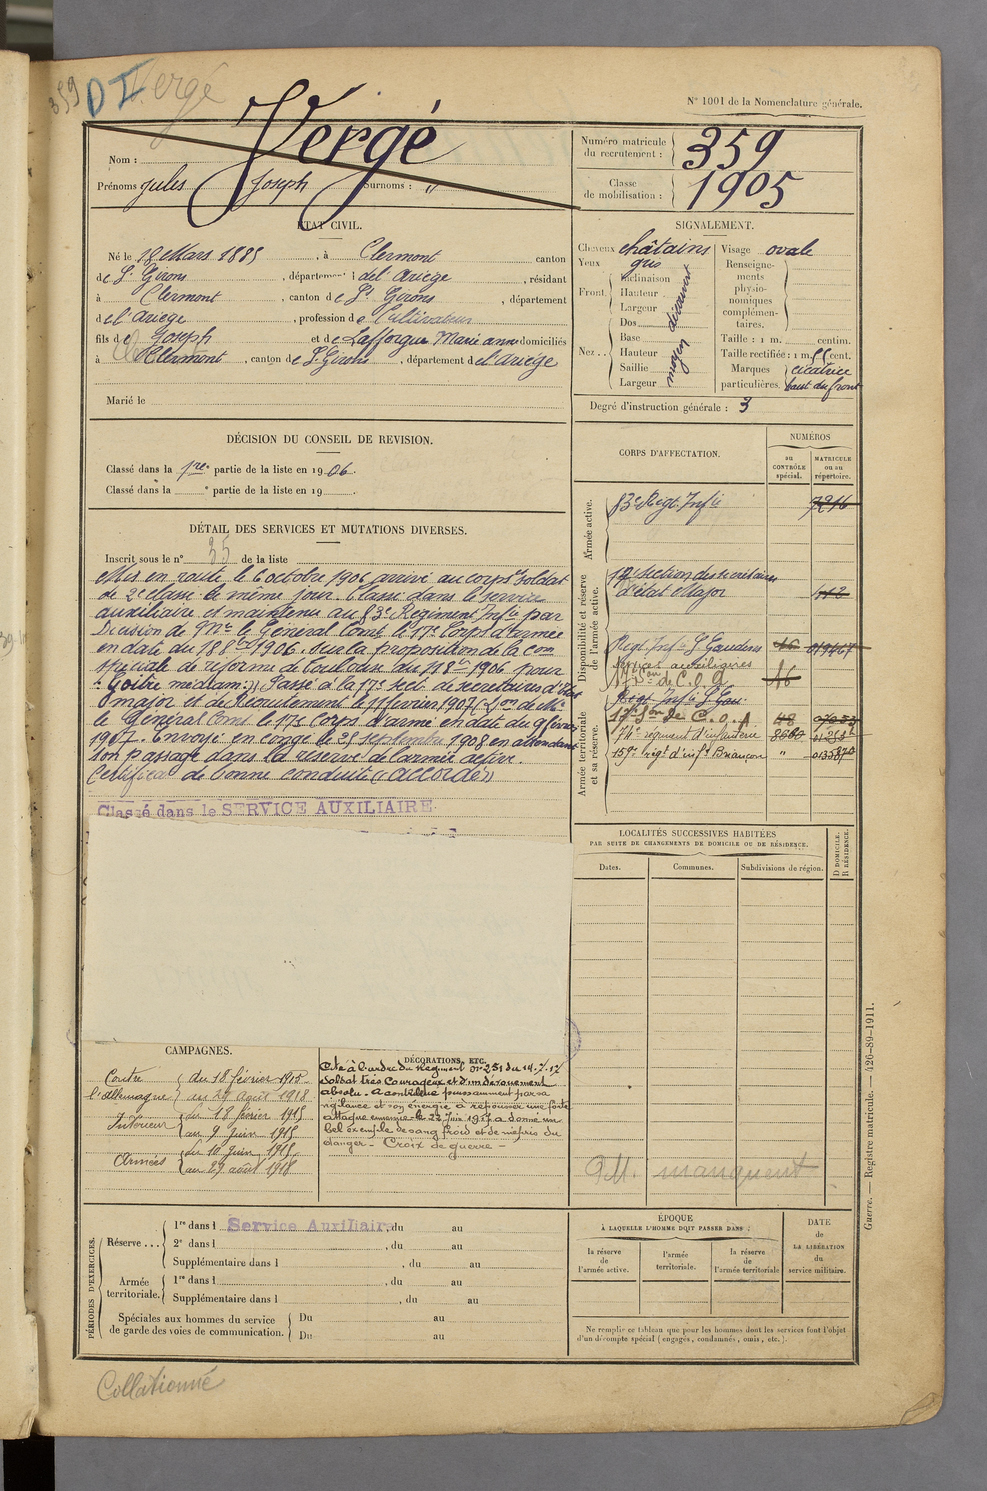 359 D II Vergé
N° 1001 de la Nomenclature générale.
Nom : Vergé
Prénoms Jules Joseph Surnoms : "
Numéro matricule du recrutement : 359
Classe de mobilisation : 1905
ÉTAT CIVIL.
Né le 18 Mars 1885, à Clermont canton
de St Girons, département de l'Ariège, résidant
à Clermont, canton de St Girons, département
de l'Ariège, profession de Cultivateur
fils de Joseph et de Lafforgue Marie ann domiciliés
à Clermont, canton de St Girons, département de l'Ariège
Marié le
SIGNALEMENT.
Cheveux châtains Visage ovale
Yeux gris
Front. Inclinaison Hauteur Largeur découvert
Nez... Dos Base Hauteur Saillie Largeur moyen
Renseignements physionomiques complémentaires.
Taille : 1 m. centim.
Taille rectifiée : 1 m. cent.
Marques particulières. cicatrice haut du front
Degré d'instruction générale : 3
DÉCISION DU CONSEIL DE REVISION.
Classé dans la 1re partie de la liste en 1906.
Classé dans la e partie de la liste en 19
DÉTAIL DES SERVICES ET MUTATIONS DIVERSES.
Inscrit sous le n° 35 de la liste
Mis en route le 6 octobre 1906 arrivé au corps et soldat
de 2e classe le même jour. Classé dans le service
auxiliaire et maintenu au 83e Régiment Infie par
Décision de Mr le Général Comt le 17e Corps d'armée
en date du 18 8bre 1906. sur la proposition de la com
spéciale de réforme de Toulouse du 11 8bre 1906 pour
"Goitre médian". Passé à la 17e sect. de secrétaires d'Etat
Major et de Recrutement le 11 février 1907 (Don de Mr
le Général Comt le 17e Corps d'armée en date du 9 février
1907. Envoyé en congé le 25 septembre 1908 en attendant
son passage dans la réserve de l'armée active.
Certificat de bonne conduite "accordé"
Classé dans le SERVICE AUXILIAIRE
CORPS D'AFFECTATION.
NUMÉROS
au CONTRÔLE spécial.
MATRICULE ou au répertoire.
Armée active.
83e Regt Infie 7216
Disponibilité et réserve de l'armée active.
17e Section des secrétaires
d'état Major 112
Regt Infie St Gaudens 46
services auxiliaires
17e Son de C.O.A 46
Armée territoriale et sa réserve.
Regt Infie St Gau.
17e Son de C.O.A 48
14e régiment d'infanterie 8660
159e régt d'infie Briançon " 013587
LOCALITÉS SUCCESSIVES HABITÉES
PAR SUITE DE CHANGEMENTS DE DOMICILE OU DE RÉSIDENCE.
Dates. Communes. Subdivisions de région. D DOMICILE. R RÉSIDENCE.
CAMPAGNES.
Contre l'Allemagne du 18 février 1915 au 29 août 1918
Intérieur du 18 février 1915 au 9 juin 1915
Armées du 10 juin 1915 au 29 août 1918
DÉCORATIONS, ETC.
Cité à l'ordre du Régiment n° 251 du 14.7.17
Soldat très courageux et d'un dévouement
absolu. a contribué puissamment par sa
vigilance et son énergie à repousser une forte
attaque ennemie le 22 Juin 1917 a donné un
bel exemple de sang froid et de mépris du
danger - Croix de guerre -
manquent
PÉRIODES D'EXERCICES.
Réserve... 1re dans l Service Auxiliaire, du au
2e dans l , du au
Supplémentaire dans l , du au
Armée territoriale. 1re dans l , du au
Supplémentaire dans l , du au
Spéciales aux hommes du service de garde des voies de communication. Du au
Du au
ÉPOQUE
À LAQUELLE L'HOMME DOIT PASSER DANS :
la réserve de l'armée active. l'armée territoriale. la réserve de l'armée territoriale
DATE de LA LIBÉRATION du service militaire.
Ne remplir ce tableau que pour les hommes dont les services font l'objet
d'un décompte spécial (engagés, condamnés, omis, etc.).
Guerre. — Registre matricule. — 426-89-1911.
Collationné